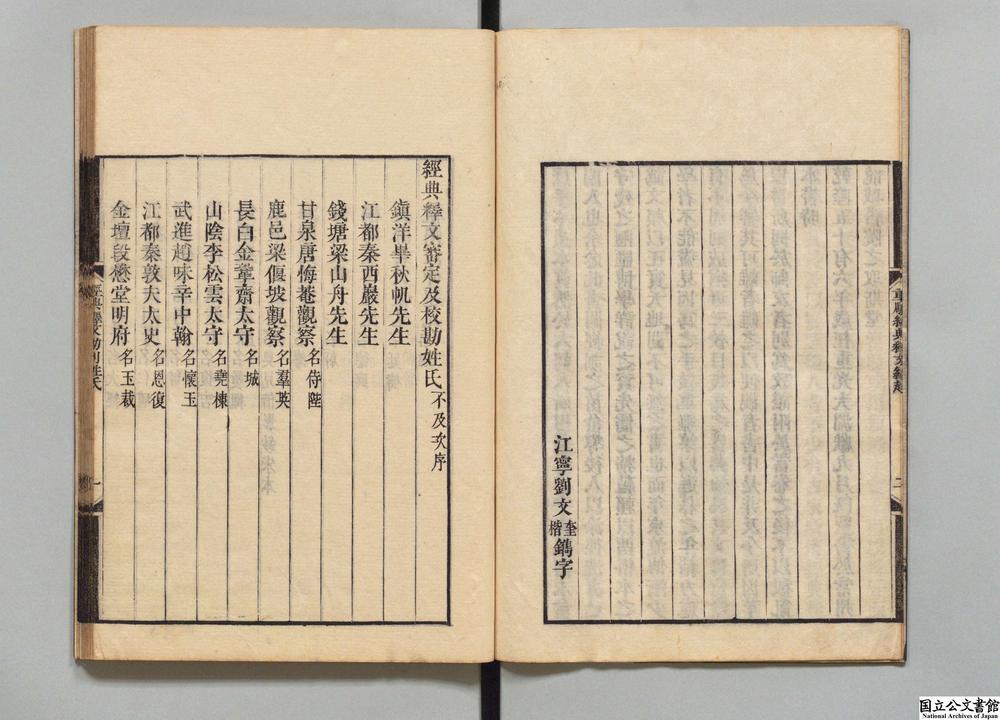 重雕經典釋文緣起
二
江寧劉文奎楷鐫字
經典釋文審定及校勘姓氏不及次序
鎮洋畢秋帆先生
江都秦西巖先生
錢塘梁山舟先生
甘泉唐悔菴觀察名侍陛
鹿邑梁偃坡觀察名羣英
長白金犖齋太守名城
山陰李松雲太守名堯棟
武進趙味辛中翰名懷玉
江都秦敦夫太史名恩復
金壇段懋堂明府名玉裁
一
国立公文書館
National Archives of Japan